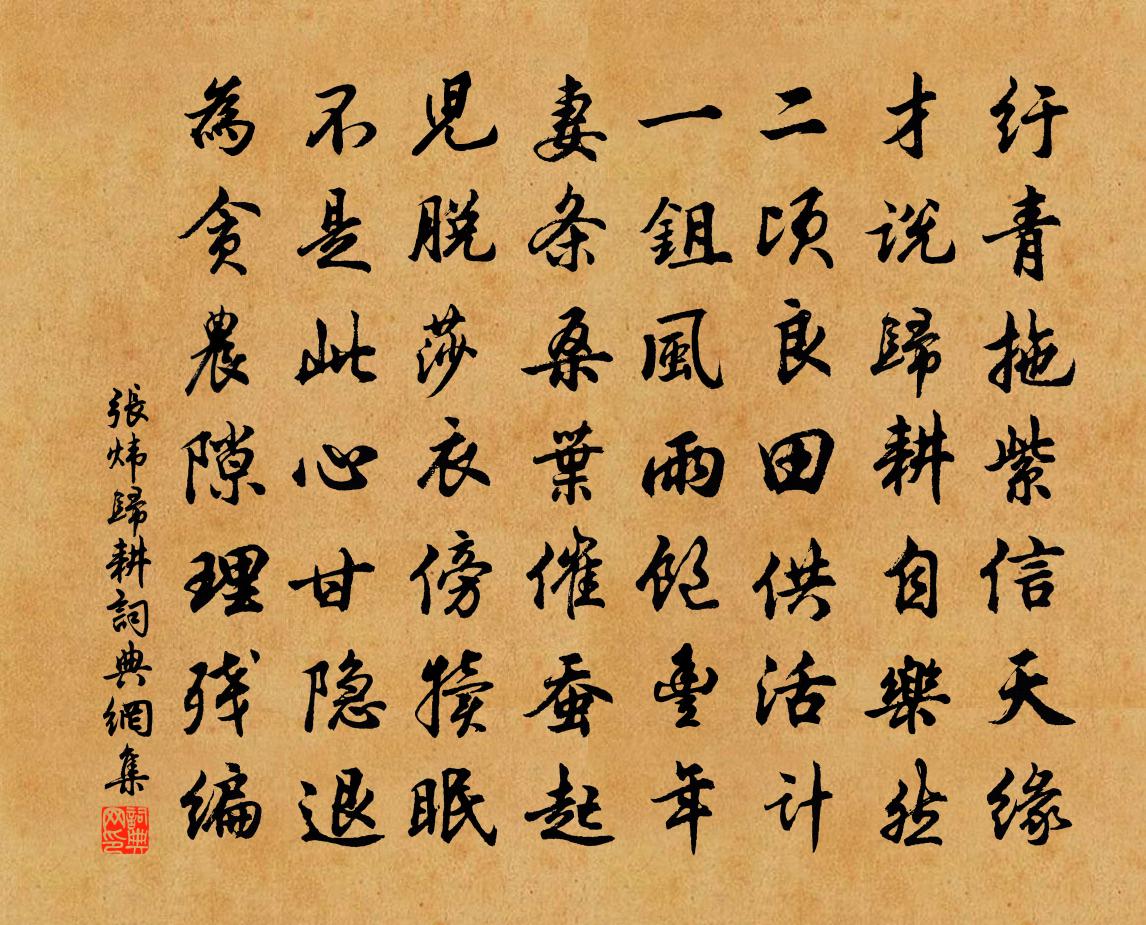 紆青拖紫信天緣
才说歸耕自樂然
二顷良田供活计
一鉏風雨飽豊年
妻条桑葉催蚕起
児脱莎衣傍犊眠
不是此心甘隐退
為贪農隙理残编
張炜歸耕詞典網集
詞典网印